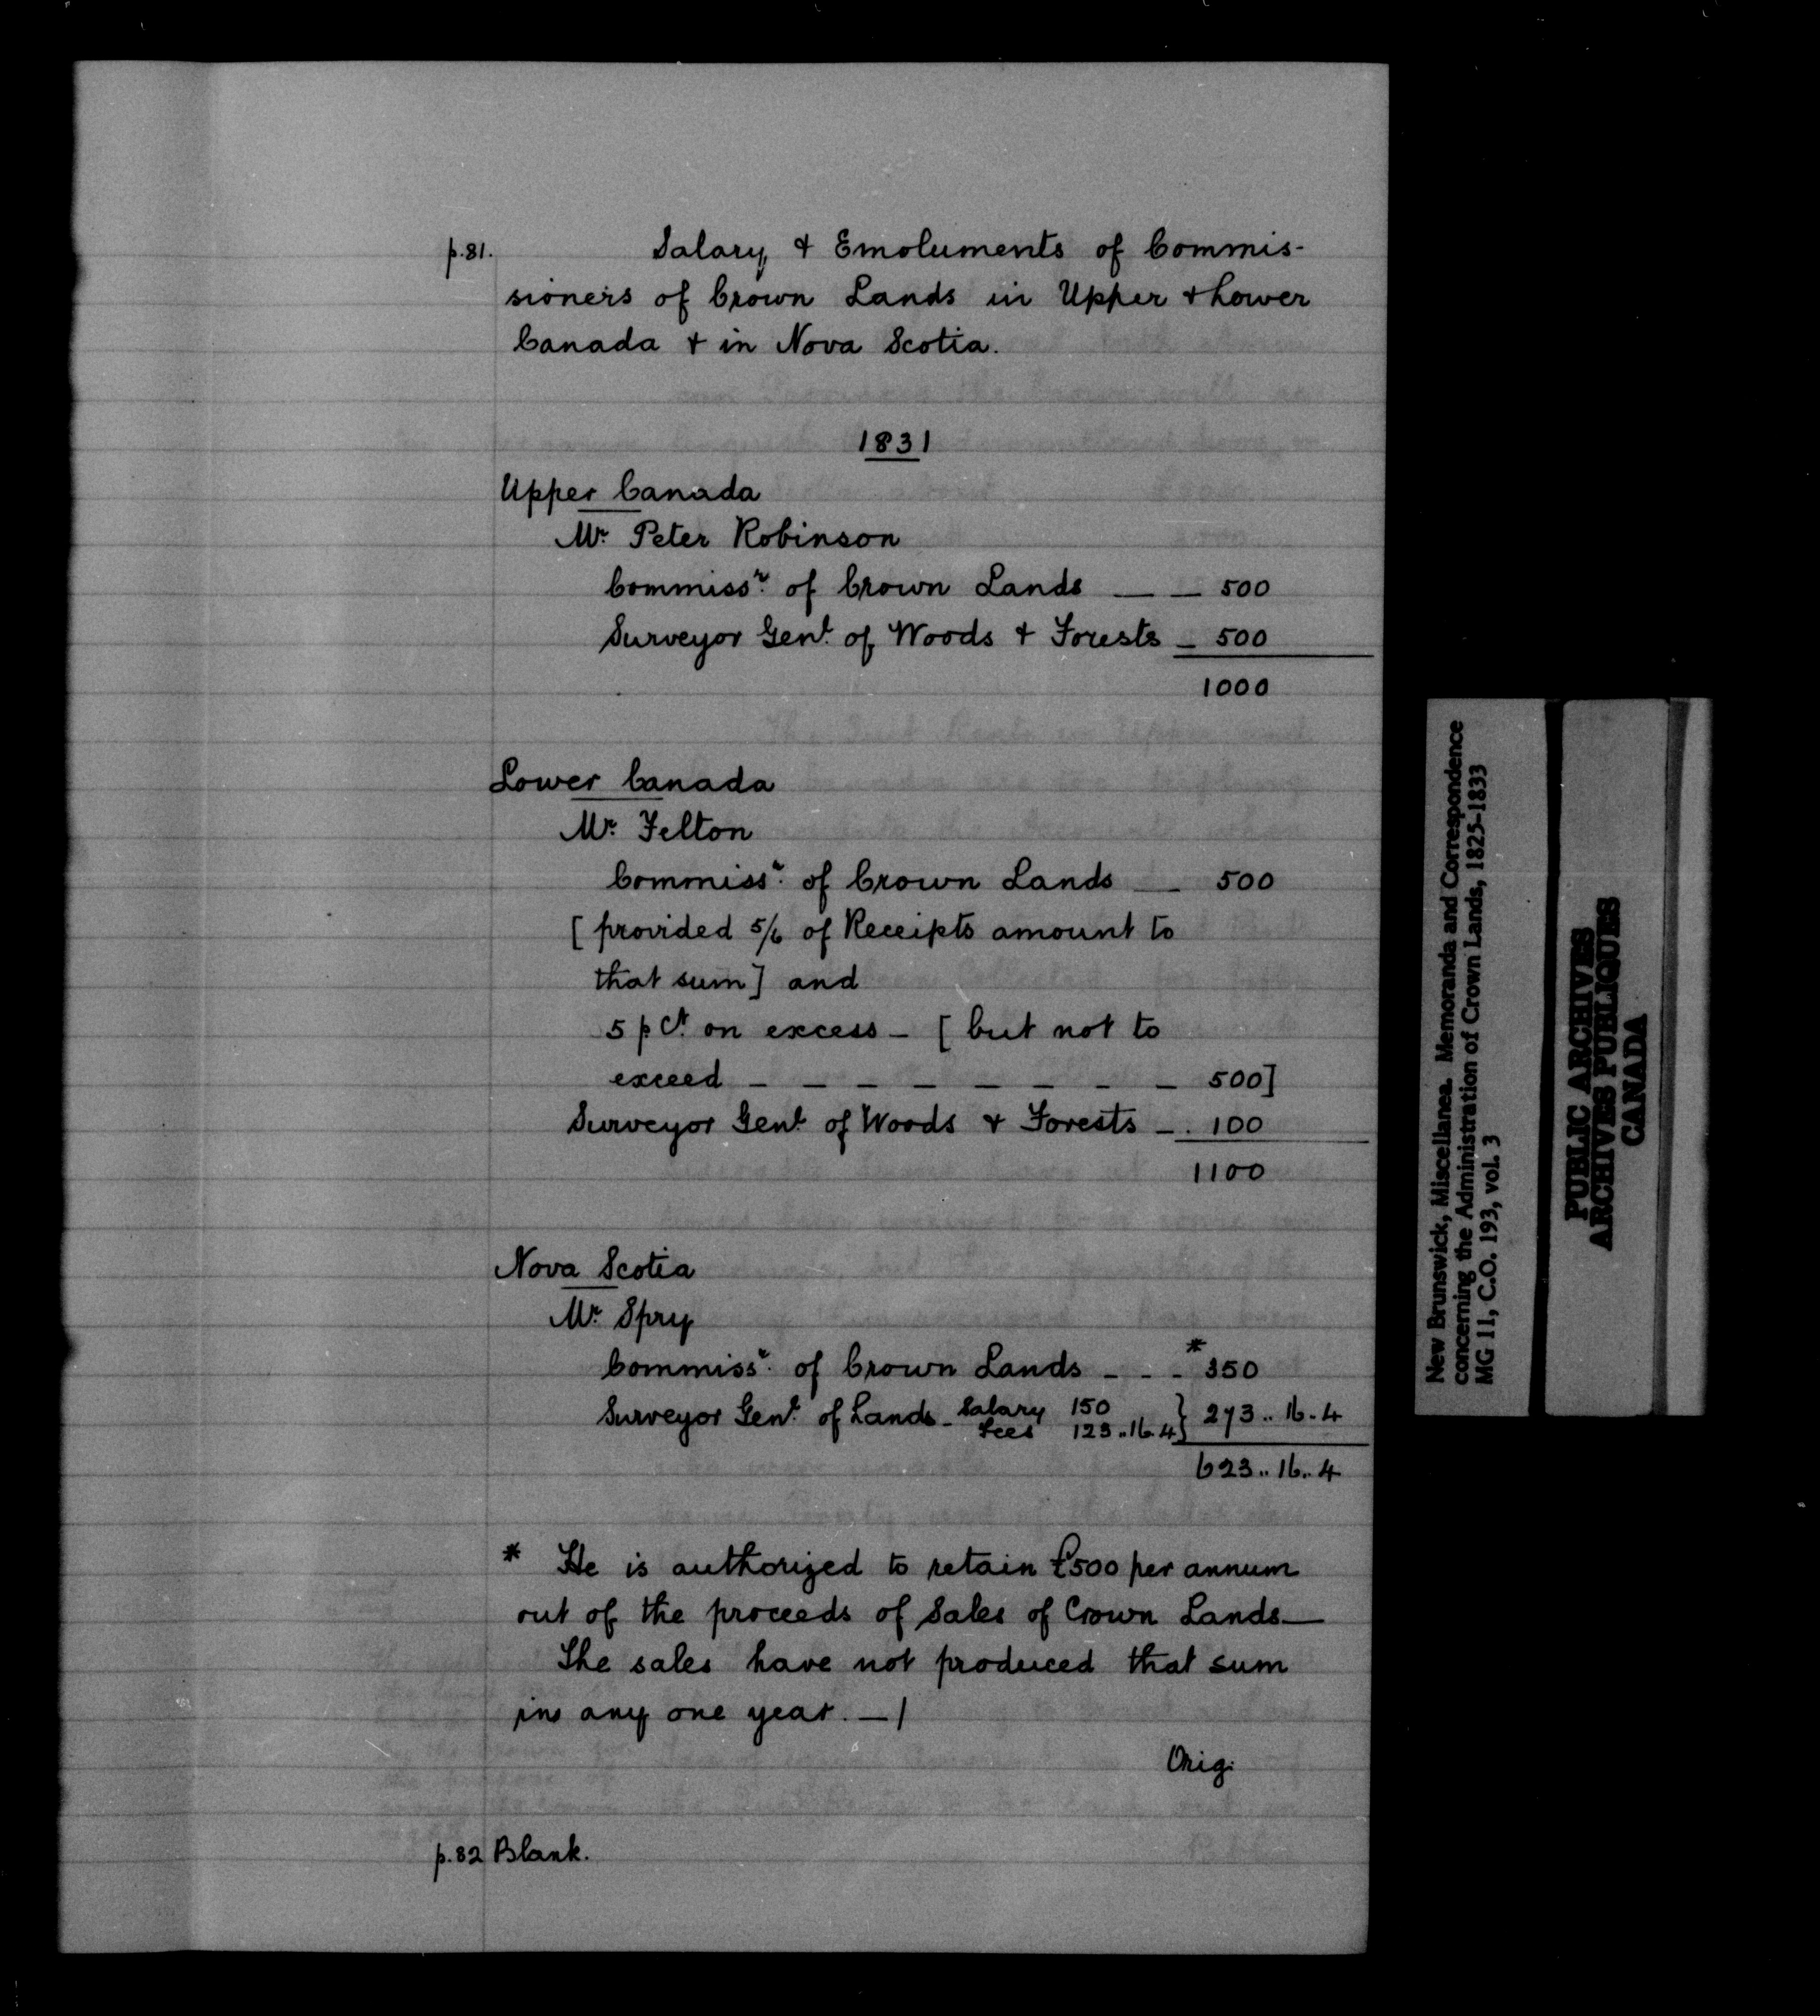 p.81. Salary & Emoluments of Commis-
sioners of Crown Lands in Upper & Lower
Canada & in Nova Scotia.
1831
Upper Canada
Mr. Peter Robinson
Commissr. of Crown Lands — — 500
Surveyor Genl. of Woods & Forests — 500
1000
Lower Canada
Mr. Felton
Commissr. of Crown Lands — 500
[ provided 5/6 of Receipts amount to
that sum ] and
5 p Ct. on excess — [ but not to
exceed — — — — — — — — 500]
Surveyor Genl. of Woods & Forests — 100
1100
Nova Scotia
Mr. Spry
Commissr. of Crown Lands - - - *350
Surveyor Genl. of Lands - Salary 150
Fees 123..16.4 } 273..16.4
623..16..4
* He is authorized to retain £500 per annum
out of the proceeds of Sales of Crown Lands—
The sales have not produced that sum
in any one year. —/
Orig.
p.82 Blank.
New Brunswick, Miscellanea. Memoranda and Correspondence
concerning the Administration of Crown Lands, 1825-1833
MG 11, C.O. 193, vol. 3
PUBLIC ARCHIVES
ARCHIVES PUBLIQUES
CANADA